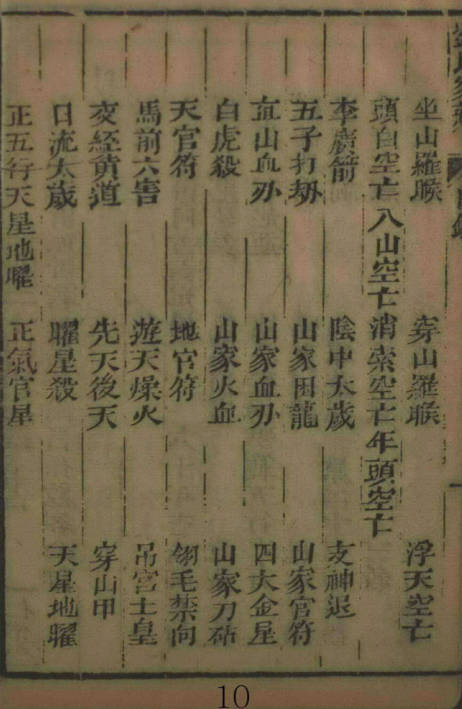 坐山羅睺 穿山羅睺 浮天空亡
頭白空亡 入山空亡 消索空亡 年頭空亡
李廣箭 陰中太歲 支神退
五子打刼 山家困龍 山家官符
血刃 山家血刃 四大金星
白虎殺 山家火血 山家刀砧
天官符 地官符 翎毛禁向
馬前六害 遊天燥火 吊宮土皇
交經黄道 先天後天 穿山甲
日流太歲 曜星殺 天星地曜
正五行天星地曜 正氣官星
10